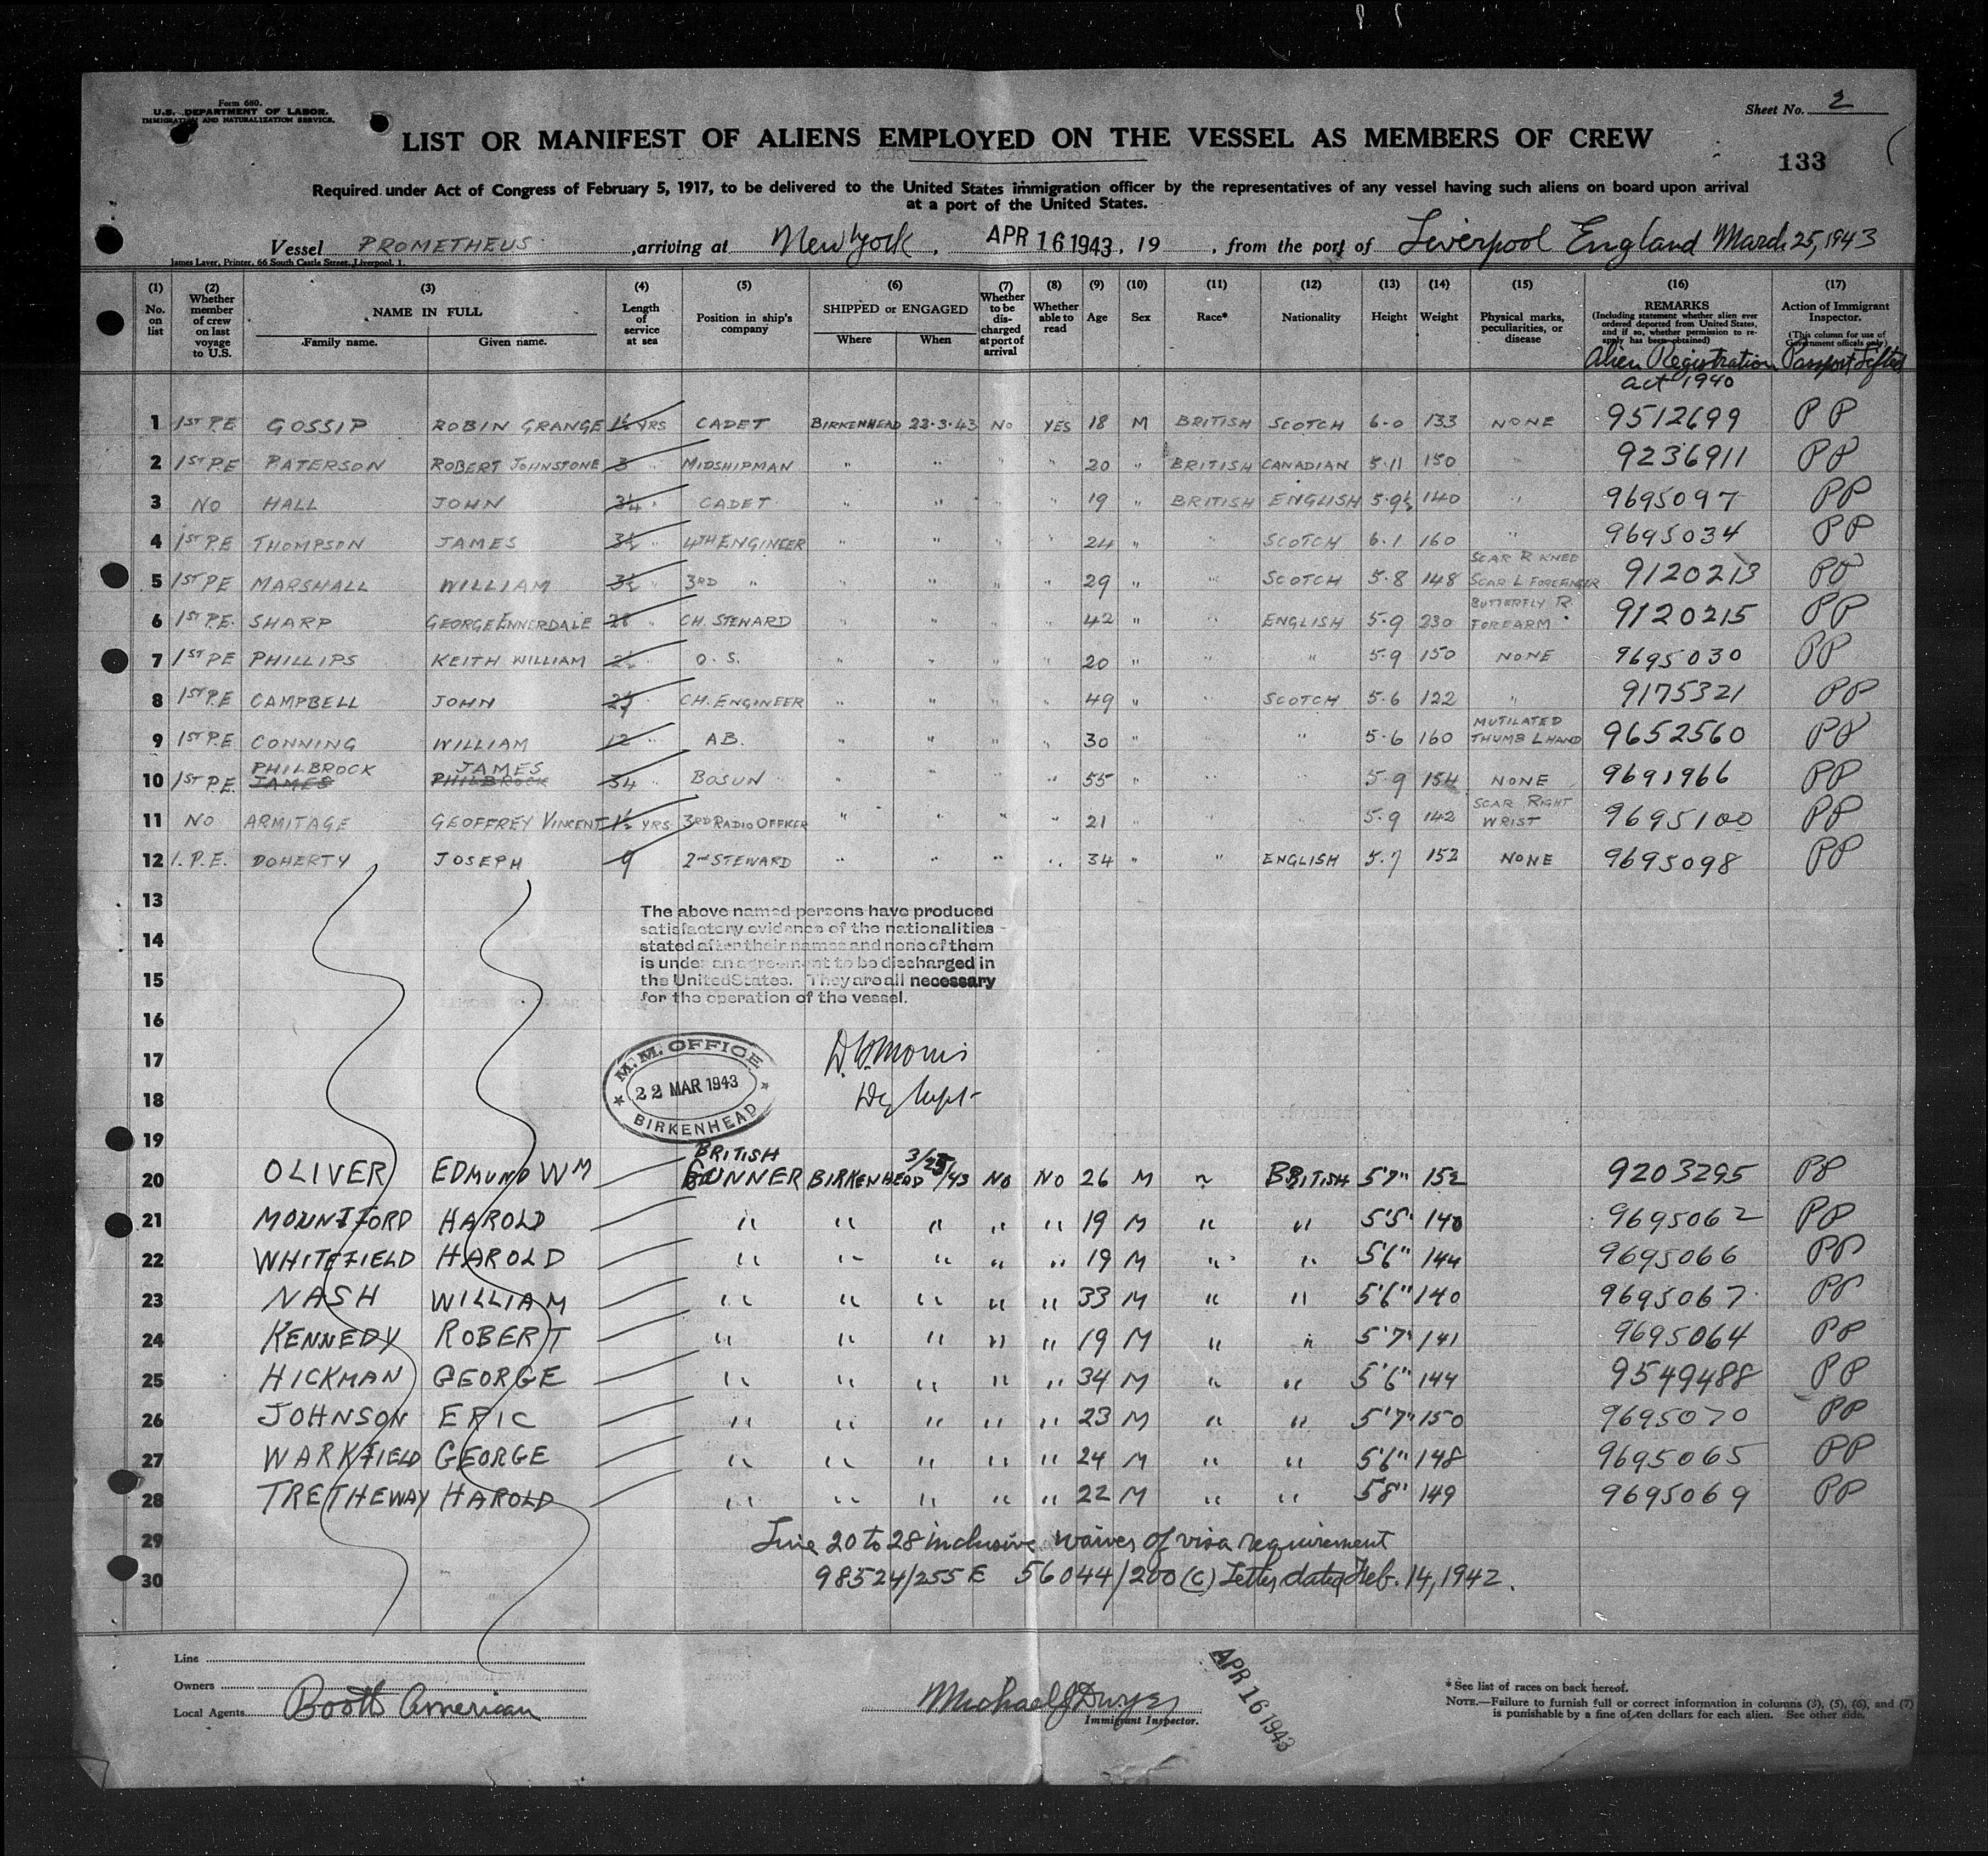 Form 680.
U.S. DEPARTMENT OF LABOR.
IMMIGRATION AND NATURALIZATION SERVICE.
Sheet No. 2
LIST OR MANIFEST OF ALIENS EMPLOYED ON THE VESSEL AS MEMBERS OF CREW
133
Required under Act of Congress of February 5, 1917, to be delivered to the United States immigration officer by the representatives of any vessel having such aliens on board upon arrival
at a port of the United States.
Vessel PROMETHEUS, arriving at New York, APR 16 1943, 19 , from the port of Liverpool England March 25, 1943
James Laver, Printer, 66 South Castle Street, Liverpool, 1.
(1) No. on list
(2) Whether member of crew on last voyage to U.S.
(3) NAME IN FULL Family name. Given name.
(4) Length of service at sea
(5) Position in ship's company
(6) SHIPPED or ENGAGED Where When
(7) Whether to be discharged at port of arrival
(8) Whether able to read
(9) Age
(10) Sex
(11) Race*
(12) Nationality
(13) Height
(14) Weight
(15) Physical marks, peculiarities, or disease
(16) REMARKS (Including statement whether alien ever ordered deported from United States, and if so, whether permission to re-apply has been obtained)
Alien Registration act 1940
(17) Action of Immigrant Inspector. (This column for use of Government officials only)
Passport Lifted
1 1ST P.E GOSSIP ROBIN GRANGE 1½ YRS CADET BIRKENHEAD 22-3-43 NO YES 18 M BRITISH SCOTCH 6-0 133 NONE 9512699 PP
2 1ST P.E PATERSON ROBERT JOHNSTONE 3 " MIDSHIPMAN " " 20 " BRITISH CANADIAN 5-11 150 " 9236911 PP
3 NO HALL JOHN 3/4 " CADET " " " " 19 " BRITISH ENGLISH 5-9½ 140 " 9695097 PP
4 1ST P.E THOMPSON JAMES 3½ " 4TH ENGINEER " " " " 24 " " SCOTCH 6-1 160 " 9695034 PP
5 1ST P.E MARSHALL WILLIAM 3½ " 3RD " " " " " 29 " " SCOTCH 5-8 148 SCAR R KNEE SCAR L FOREFINGER 9120213 PP
6 1ST P.E. SHARP GEORGE ENNERDALE 28 " CH. STEWARD " " " " 42 " " ENGLISH 5-9 230 BUTTERFLY R. FOREARM 9120215 PP
7 1ST P.E PHILLIPS KEITH WILLIAM 2½ " O. S. " " " " 20 " " " 5-9 150 NONE 9695030 PP
8 1ST P.E CAMPBELL JOHN CH. ENGINEER " " " " 49 " " SCOTCH 5-6 122 " 9175321 PP
9 1ST P.E CONNING WILLIAM 12 " AB. " " " " 30 " " " 5-6 160 MUTILATED THUMB L HAND 9652560 PP
10 1ST P.E. PHILBROCK JAMES JAMES PHILBROCK 34 BOSUN " " " " 55 " " " 5-9 154 NONE 9691966 PP
11 NO ARMITAGE GEOFFREY VINCENT 1½ YRS 3RD RADIO OFFICER " " " " 21 " " " 5-9 142 SCAR RIGHT WRIST 9695100 PP
12 1. P.E. DOHERTY JOSEPH 9 2nd STEWARD " " " " 34 " " ENGLISH 5-7 152 NONE 9695098 PP
13
The above named persons have produced
satisfactory evidence of the nationalities
14
stated after their names and none of them
is under an agreement to be discharged in
15
the United States. They are all necessary
for the operation of the vessel.
16
17
M. M. OFFICE
22 MAR 1943
BIRKENHEAD
18
19
20 OLIVER EDMUND WM BRITISH GUNNER BIRKENHEAD 3/25/43 NO NO 26 M " BRITISH 5'7" 152 9203295 PP
21 MOUNTFORD HAROLD " " " " " 19 M " " 5'5" 140 9695062 PP
22 WHITEFIELD HAROLD " " " " " 19 M " " 5'6" 144 9695066 PP
23 NASH WILLIAM " " " " " 33 M " " 5'6" 140 9695067 PP
24 KENNEDY ROBERT " " " " " 19 M " " 5'7" 141 9695064 PP
25 HICKMAN GEORGE " " " " " 34 M " " 5'6" 144 9549488 PP
26 JOHNSON ERIC " " " " " 23 M " " 5'7" 150 9695070 PP
27 WARKFIELD GEORGE " " " " " 24 M " " 5'6" 148 9695065 PP
28 TRETHEWAY HAROLD " " " " " 22 M " " 5'8" 149 9695069 PP
29 Line 20 to 28 inclusive waiver of visa requirement
30 98524/255 E 56044/200 (C) Letter dated Feb. 14, 1942.
Line
Owners
Local Agents Booth American
Michael J Dwyer
Immigrant Inspector.
APR 16 1943
* See list of races on back hereof.
NOTE.—Failure to furnish full or correct information in columns (3), (5), (6), and (7)
is punishable by a fine of ten dollars for each alien. See other side.